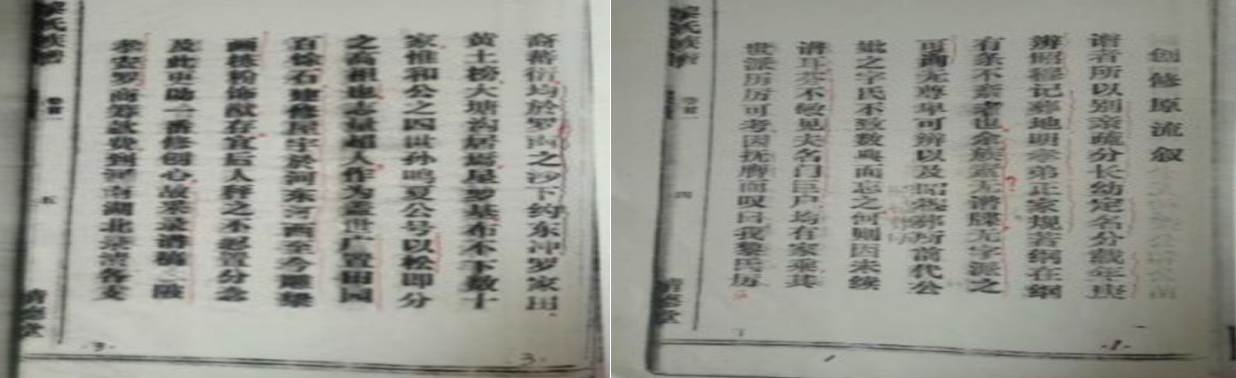 创修原流叙
谱者所以别亲疏分长幼定名分载年庚
辨昭穆记葬地明孝弟正家规若纲在纲
有条不紊者也余族素无谱牒无字派之
可询无尊卑可辨以及昭穆葬所前代公
妣之字氏不致数典而忘之何则因未续
讲耳恭不敏见夫名门巨户均有家乘其
世派历历可考因抚膺而叹曰我黎氏历
黎氏族谱
卷首
四
1
裔蕃衍均於罗内之沙下约东冲罗家田
黄土榜大塘沟居焉星罗基布不下数十
家惟和公之四世孙鸣夏公号以松即分
之高祖也志量超人作为盖世广置田园
百馀石建修屋宇於河东河西至今雕梁
画栋粉饰猷存宜后人秤之不忍置分念
及此更助一番修创心故采录谱稿
孝安罗商筹款费到河南湖北录清各支
黎氏族谱
卷首
五
3
3